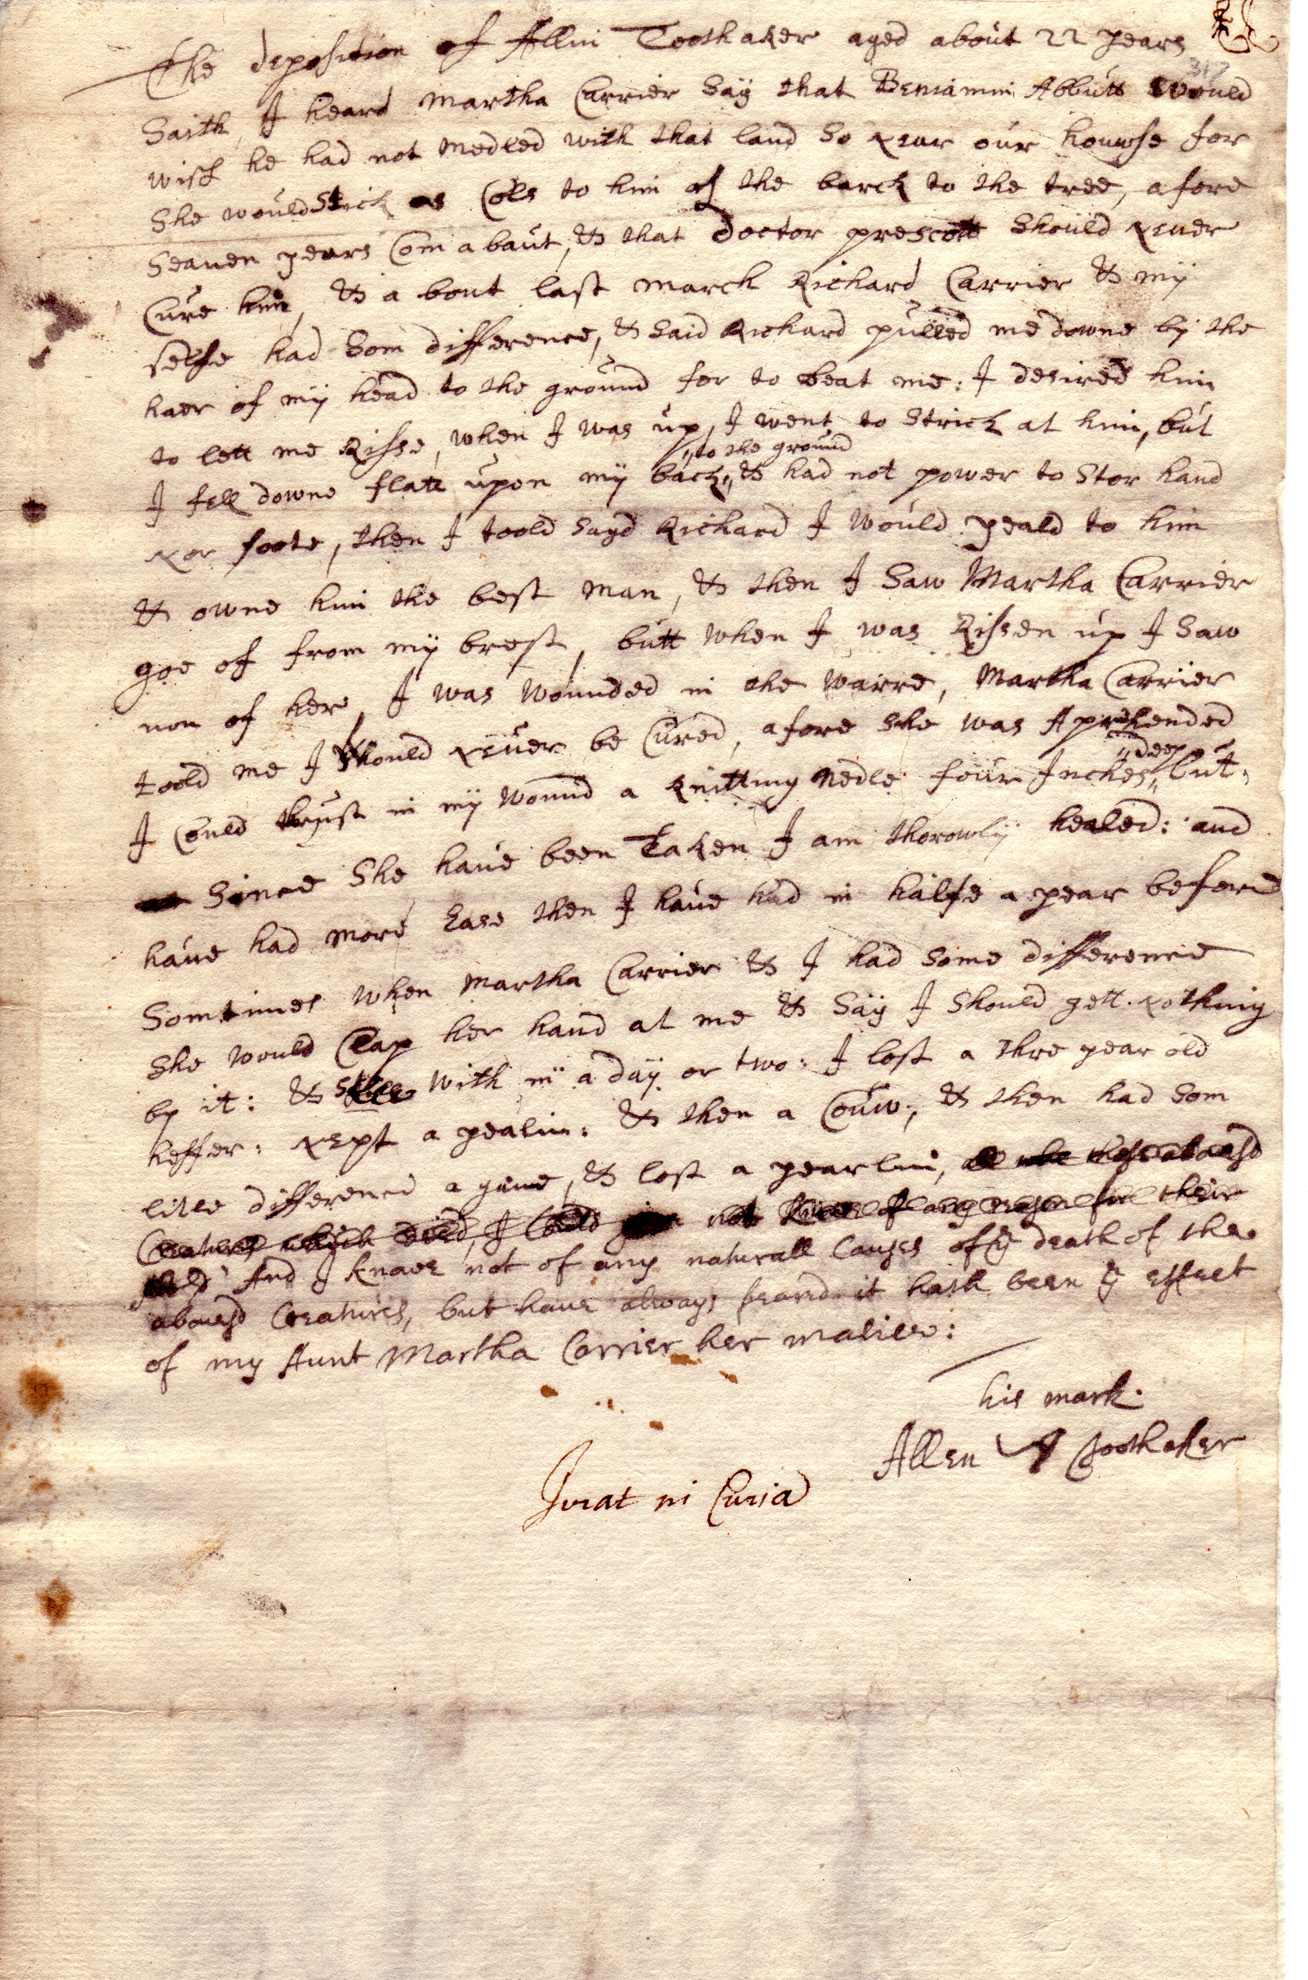 The deposition of Allin Toothaker aged about 22 years
317
Saith, I heard Martha Carrier Say that Beniamin Abbutt would
wish he had not medled with that land so near our houwse for
She would Stick as Cols to him as the barck to the tree, afore
Seauen years Com abaut, & that Doctor prescott Should neuer
Cure him, & a bout last march Richard Carrier & my
selfe had Som difference, & Said Richard pulled me downe by the
haer of my head to the ground for to beat me: I desired him
to lett me Risse, when I was up, I went to Strick at him, but
I fell downe flatt upon my back, to the ground & had not power to Stor hand
nor foote, then I toold Sayd Richard I would yeald to him
& owne him the best man, & then I Saw Martha Carrier
goe of from my brest, butt when I was Rissen up I Saw
non of her, I was wounded in the warre, Martha Carrier
toold me I Should neuer be Cured, afore she was Aprehended
I Could thrust in my wound a knitting nedle four Inches deep but,
Since She haue been Taken I am thorowly healed: and
haue had more Ease then I haue had in halfe a year before
Somtimes when Martha Carrier & I had some difference
She would Clap her hand at me & Say I Should gett nothing
by it: & with in a day or two: I lost a thre year old
heffer: next a yealin: & then a Couw; & then had Som
litle difference a gaine, & lost a yearlin,
Creatures which died, I Could not know of any reason for their
And I knowe not of any naturall Causes of ye death of the
abouesd Creatures, but haue always feared it hath been ye effect
of my Aunt Martha Carrier her malice:
his mark.
Allen A Toothaker
Jurat in Curia